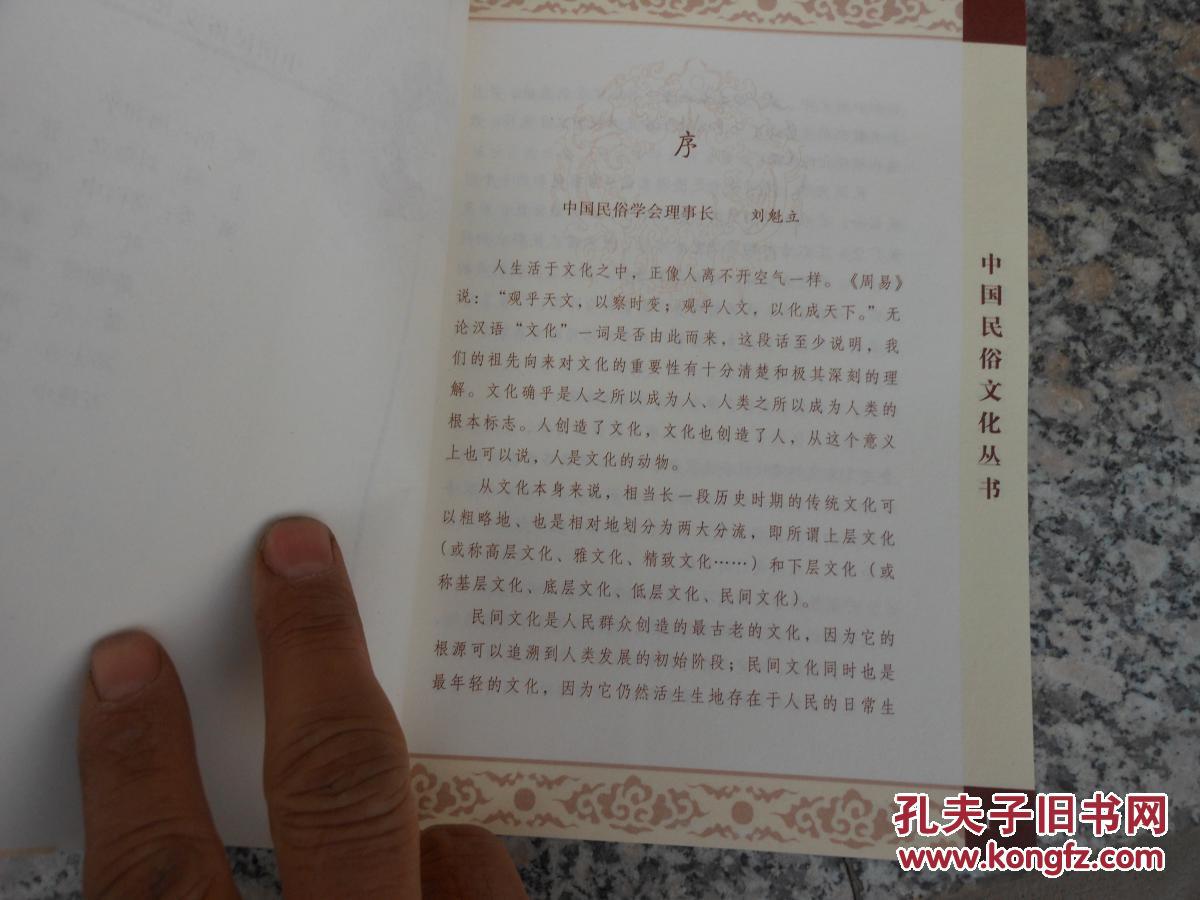 序
中国民俗学会理事长 刘魁立
人生活于文化之中，正像人离不开空气一样。《周易》
说：“观乎天文，以察时变；观乎人文，以化成天下。”无
论汉语“文化”一词是否由此而来，这段话至少说明，我
们的祖先向来对文化的重要性有十分清楚和极其深刻的理
解。文化确乎是人之所以成为人、人类之所以成为人类的
根本标志。人创造了文化，文化也创造了人，从这个意义
上也可以说，人是文化的动物。
从文化本身来说，相当长一段历史时期的传统文化可
以粗略地、也是相对地划分为两大分流，即所谓上层文化
（或称高层文化、雅文化、精致文化……）和下层文化（或
称基层文化、底层文化、低层文化、民间文化）。
民间文化是人民群众创造的最古老的文化，因为它的
根源可以追溯到人类发展的初始阶段；民间文化同时也是
最年轻的文化，因为它仍然活生生地存在于人民的日常生
中国民俗文化丛书
孔夫子旧书网
www.kongfz.com